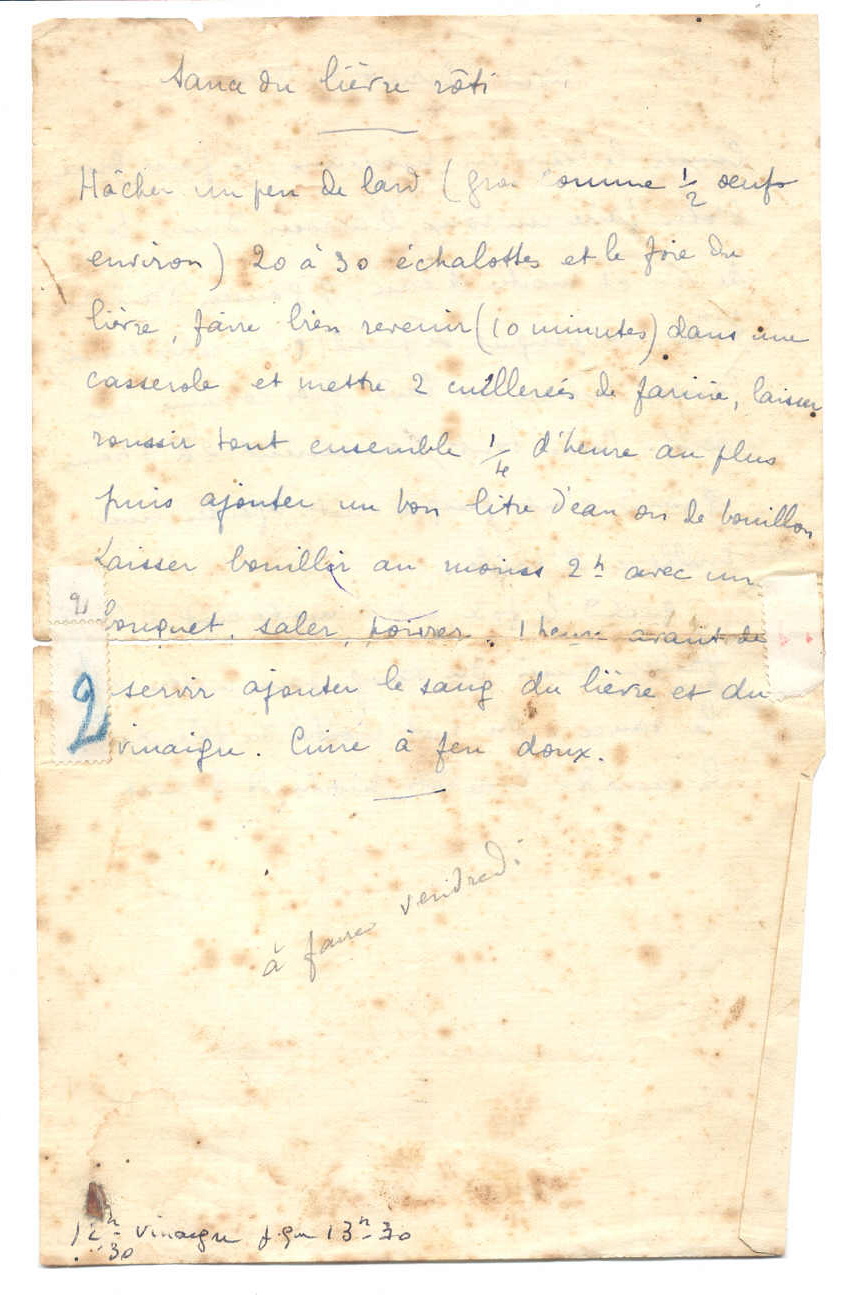 du lièvre rôti
Hâcher un peu de lard (gros comme 1/2 oeufs
environ) 20 à 30 échalottes et le foie du
lièvre, faire bien revenir (10 minutes) dans une
casserole et mettre 2 cuillereés de farine, laisser
roussir tout ensemble 1/4 d'heure au plus
puis ajouter un bon litre d'eau ou de bouillon
Laisser bouillir au moins 2h avec un
2
bouquet, saler, poivrer. 1 heure avant de
2
servir ajouter le sang du lièvre et du
vinaigre. Cuire à feu doux.
à faire vendredi
12h 30 vinaigre 13h-30